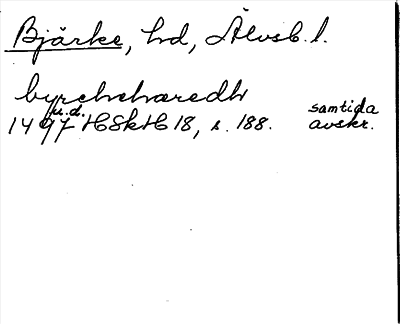 Bjärke, hd, Älvsb. l.
byrchehæredh
u.d. samtida
1497 HSkH 18, s. 188. avskr.